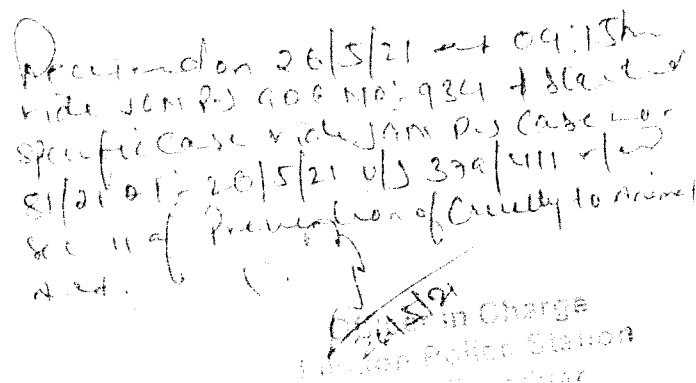 Received on 26/5/21 at 04:15 hr
vide PS GDE NO: 934 & Started
Specific Case vide PS Case no-
81/21 Dt:- 26/5/21 U/S 379/411 r/w
Sec 11 of Prevention of Cruelty to Animal
Act.
26/5/21
in Charge
Police Station